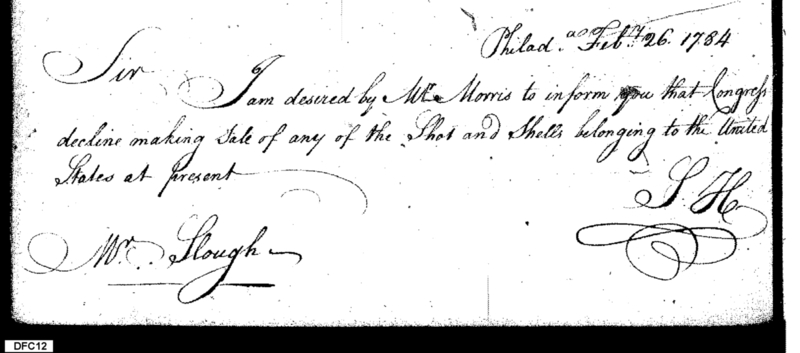 Philad.ª Feb.ʸ 26. 1784
Sir
I am desired by Mr. Morris to inform you that Congress
decline making Sale of any of the Shot and Shells belonging to the United
States at present
S. H
Mr. Slough
DFC12